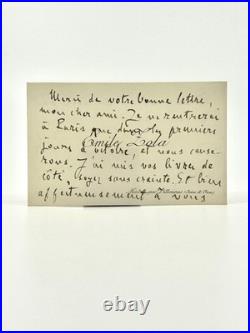 Merci de votre bonne lettre,
mon cher ami. Je ne rentrerai
à Paris que dans les premiers
Emile Zola
jours d'octobre, et nous cause-
rons. J'ai mis vos livres de
côté, soyez sans crainte. Et bien
affectueusement à vous